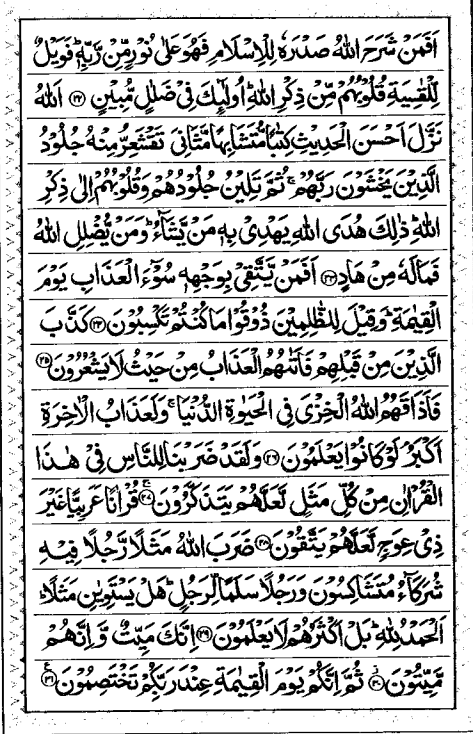 اَفَمَنْ شَرَحَ اللّٰهُ صَدْرَهٗ لِلْاِسْلَامِ فَهُوَ عَلٰى نُوْرٍ مِّنْ رَّبِّهٖ ؕ فَوَيْلٌ
لِّلْقٰسِيَةِ قُلُوْبُهُمْ مِّنْ ذِكْرِ اللّٰهِ ؕ اُولٰٓئِكَ فِيْ ضَلٰلٍ مُّبِيْنٍ ﴿۲۲﴾ اَللّٰهُ
نَزَّلَ اَحْسَنَ الْحَدِيْثِ كِتٰبًا مُّتَشَابِهًا مَّثَانِيَ تَقْشَعِرُّ مِنْهُ جُلُوْدُ
الَّذِيْنَ يَخْشَوْنَ رَبَّهُمْ ۚ ثُمَّ تَلِيْنُ جُلُوْدُهُمْ وَقُلُوْبُهُمْ اِلٰى ذِكْرِ
اللّٰهِ ؕ ذٰلِكَ هُدَى اللّٰهِ يَهْدِيْ بِهٖ مَنْ يَّشَآءُ ؕ وَمَنْ يُّضْلِلِ اللّٰهُ
فَمَا لَهٗ مِنْ هَادٍ ﴿۲۳﴾ اَفَمَنْ يَّتَّقِيْ بِوَجْهِهٖ سُوْٓءَ الْعَذَابِ يَوْمَ
الْقِيٰمَةِ ؕ وَقِيْلَ لِلظّٰلِمِيْنَ ذُوْقُوْا مَا كُنْتُمْ تَكْسِبُوْنَ ﴿۲۴﴾ كَذَّبَ
الَّذِيْنَ مِنْ قَبْلِهِمْ فَاَتٰىهُمُ الْعَذَابُ مِنْ حَيْثُ لَا يَشْعُرُوْنَ ﴿۲۵﴾
فَاَذَاقَهُمُ اللّٰهُ الْخِزْيَ فِي الْحَيٰوةِ الدُّنْيَا ۚ وَلَعَذَابُ الْاٰخِرَةِ
اَكْبَرُ ۘ لَوْ كَانُوْا يَعْلَمُوْنَ ﴿۲۶﴾ وَلَقَدْ ضَرَبْنَا لِلنَّاسِ فِيْ هٰذَا
الْقُرْاٰنِ مِنْ كُلِّ مَثَلٍ لَّعَلَّهُمْ يَتَذَكَّرُوْنَ ﴿۲۷﴾ ۚ قُرْاٰنًا عَرَبِيًّا غَيْرَ
ذِيْ عِوَجٍ لَّعَلَّهُمْ يَتَّقُوْنَ ﴿۲۸﴾ ضَرَبَ اللّٰهُ مَثَلًا رَّجُلًا فِيْهِ
شُرَكَآءُ مُتَشٰكِسُوْنَ وَرَجُلًا سَلَمًا لِّرَجُلٍ ؕ هَلْ يَسْتَوِيٰنِ مَثَلًا ؕ
اَلْحَمْدُ لِلّٰهِ ۚ بَلْ اَكْثَرُهُمْ لَا يَعْلَمُوْنَ ﴿۲۹﴾ اِنَّكَ مَيِّتٌ وَّاِنَّهُمْ
مَّيِّتُوْنَ ﴿۳۰﴾ ؗ ثُمَّ اِنَّكُمْ يَوْمَ الْقِيٰمَةِ عِنْدَ رَبِّكُمْ تَخْتَصِمُوْنَ ﴿۳۱﴾ ع